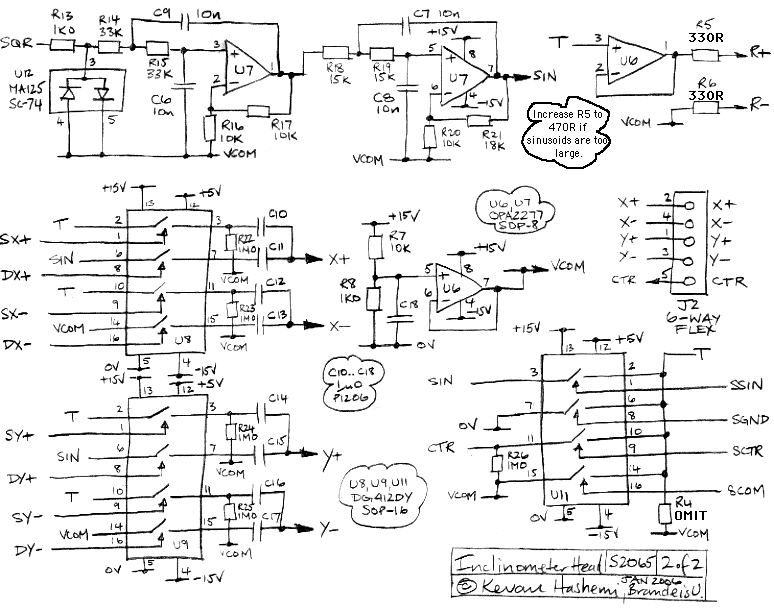 R13
1K0
R14
33K
C9
10n
SQR
3
R15
33K
3
2
U7
1
U12
MA125
SC-74
4
5
C6
10n
R16
10K
R17
10K
VCOM
C7
10n
+15V
R18
15K
R19
15K
5
8
6
U7
7
4
-15V
SIN
C8
10n
R20
10K
R21
18K
VCOM
T
3
2
U6
1
R5
330R
R+
R6
330R
R-
VCOM
Increase R5 to
470R if
sinusoids are too
large.
+15V
+5V
13
12
T
2
3
C10
SX+
1
R22
1M0
SIN
6
7
C11
X+
VCOM
DX+
8
T
10
11
C12
SX-
9
R23
1M0
VCOM
14
15
C13
X-
DX-
16
U8
VCOM
0V
5
4
-15V
+15V
+5V
13
12
T
2
3
C14
SY+
1
R24
1M0
SIN
6
7
C15
Y+
DY+
8
VCOM
T
10
11
C16
SY-
9
R25
1M0
VCOM
14
15
C17
Y-
DY-
16
U9
VCOM
0V
5
4
-15V
+15V
R7
10K
R8
1K0
C18
0V
5
6
+15V
8
U6
7
4
-15V
VCOM
U6, U7
OPA2277
SOP-8
C10..C18
1u0
P1206
U8, U9, U11
DG412DY
SOP-16
X+
2
X+
X-
4
X-
Y+
1
Y+
Y-
3
Y-
CTR
5
CTR
J2
6-WAY
FLEX
+15V
+5V
T
13
12
SIN
3
2
1
SSIN
0V
7
6
8
SGND
CTR
11
10
9
SCTR
R26
1M0
15
14
16
SCOM
VCOM
U11
0V
5
4
-15V
R4
OMIT
VCOM
Inclinometer Head S2065 2 of 2
© Kevan Hashemi, JAN 2006 Brandeis U.